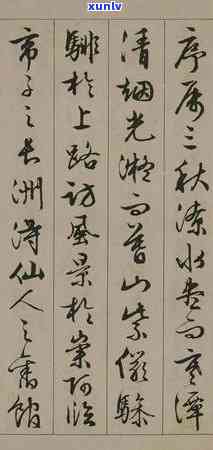 xunlv
序屬三秋潦水盡而寒潭
清煙光凝而暮山紫儼驂
騑於上路訪風景於崇阿臨
帝子之長洲得仙人之舊館